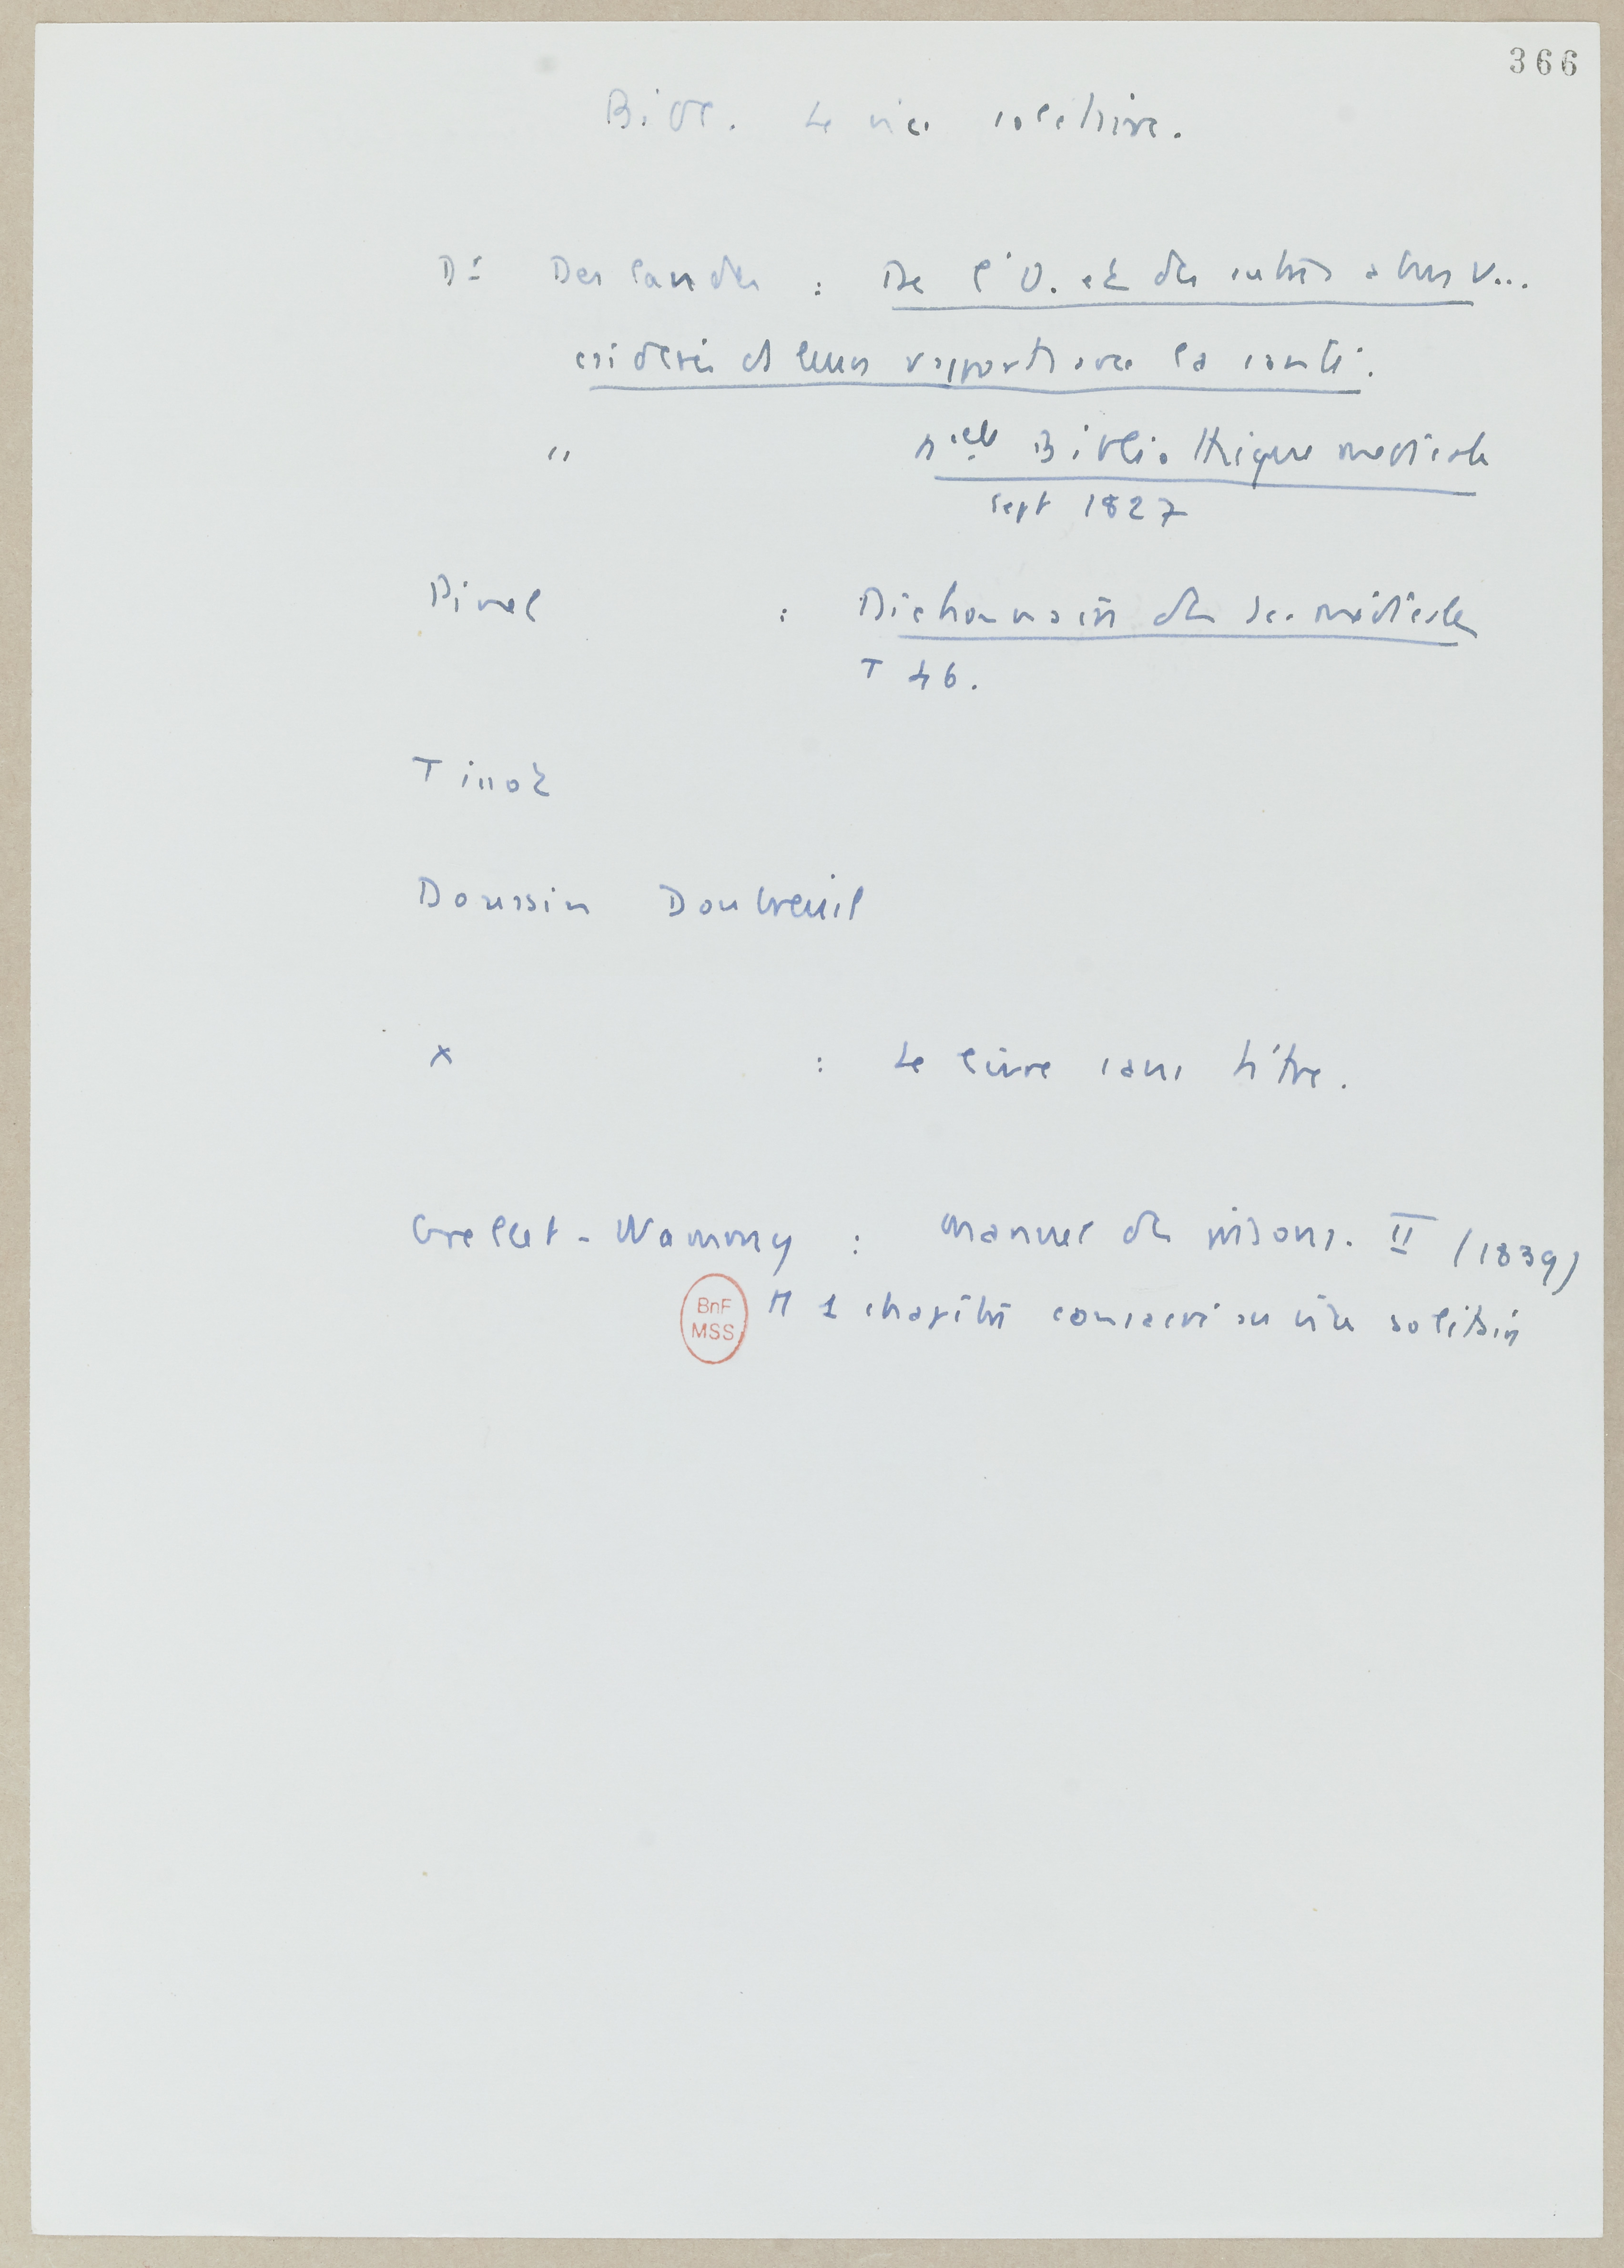 366
Bibl. Le vice solitaire.
Dr Deslandes : De l'O. et des autres abus v...
considérés ds leurs rapports avec la santé.
" Nelle Bibliothèque médicale
sept 1827
Pinel : Dictionnaire des Sc. médicales
T 46.
Tissot
Doussin Doubreuil
x : Le livre sans titre.
Grellet-Wammy : Manuel des prisons. II (1839)
1 chapitre consacré au vice solitaire
BnF
MSS